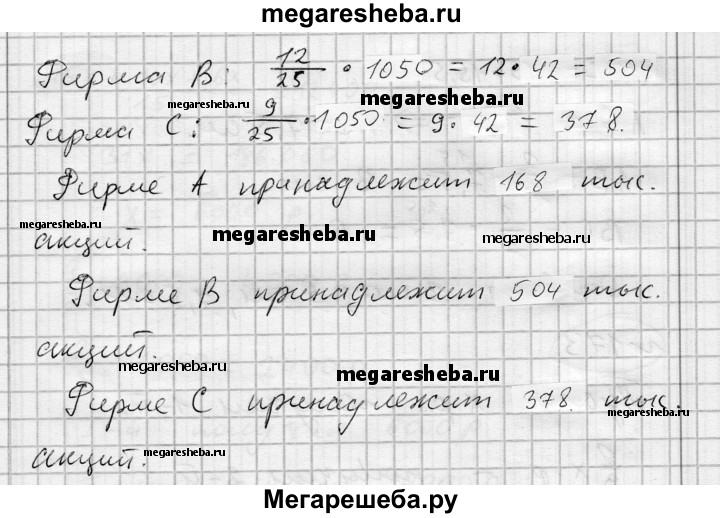 megaresheba.ru
Фирма B: 12/25 · 1050 = 12 · 42 = 504
megaresheba.ru megaresheba.ru
Фирма C: 9/25 · 1050 = 9 · 42 = 378.
megaresheba.ru
Фирме A принадлежит 168 тыс.
megaresheba.ru
акций. megaresheba.ru
megaresheba.ru
Фирме B принадлежит 504 тыс.
акций.
megaresheba.ru megaresheba.ru
Фирме C принадлежит 378 тыс.
megaresheba.ru
акций. megaresheba.ru
Мегарешеба.ру